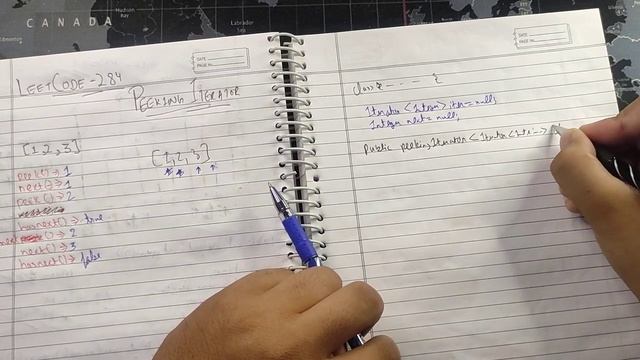 CANADA
Hudson
Bay
Labrador
Sea
DATE
PAGE NO.
DATE
PAGE NO.
LEETCODE-284
PEEKING ITERATOR
[1,2,3]
[1,2,3]
peek() → 1
next() → 1
peek() → 2
hasnext() → true
next() → 2
next() → 3
hasnext() → false
class - - - - {
Iterator <Integer> iter = null;
Integer next = null;
public peekingIterator <Iterator <Inte